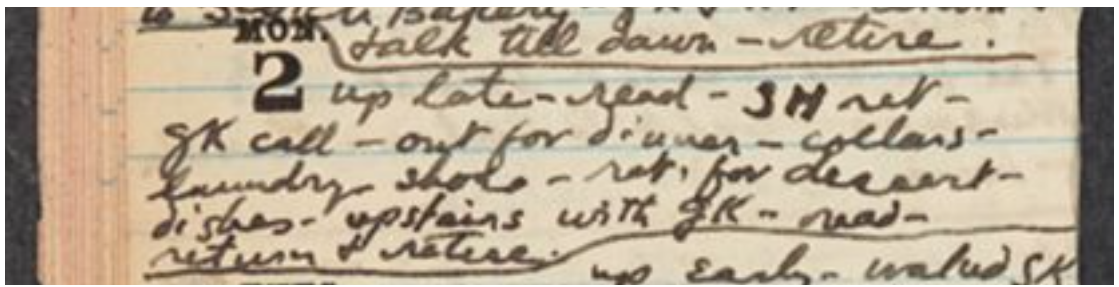 MON. talk till dawn - retire.
2 up late - read - SH ret -
GK call - out for dinner - collars -
laundry - shoes - ret. for dessert -
dishes - upstairs with GK - read -
return & retire.
up early - waked GK